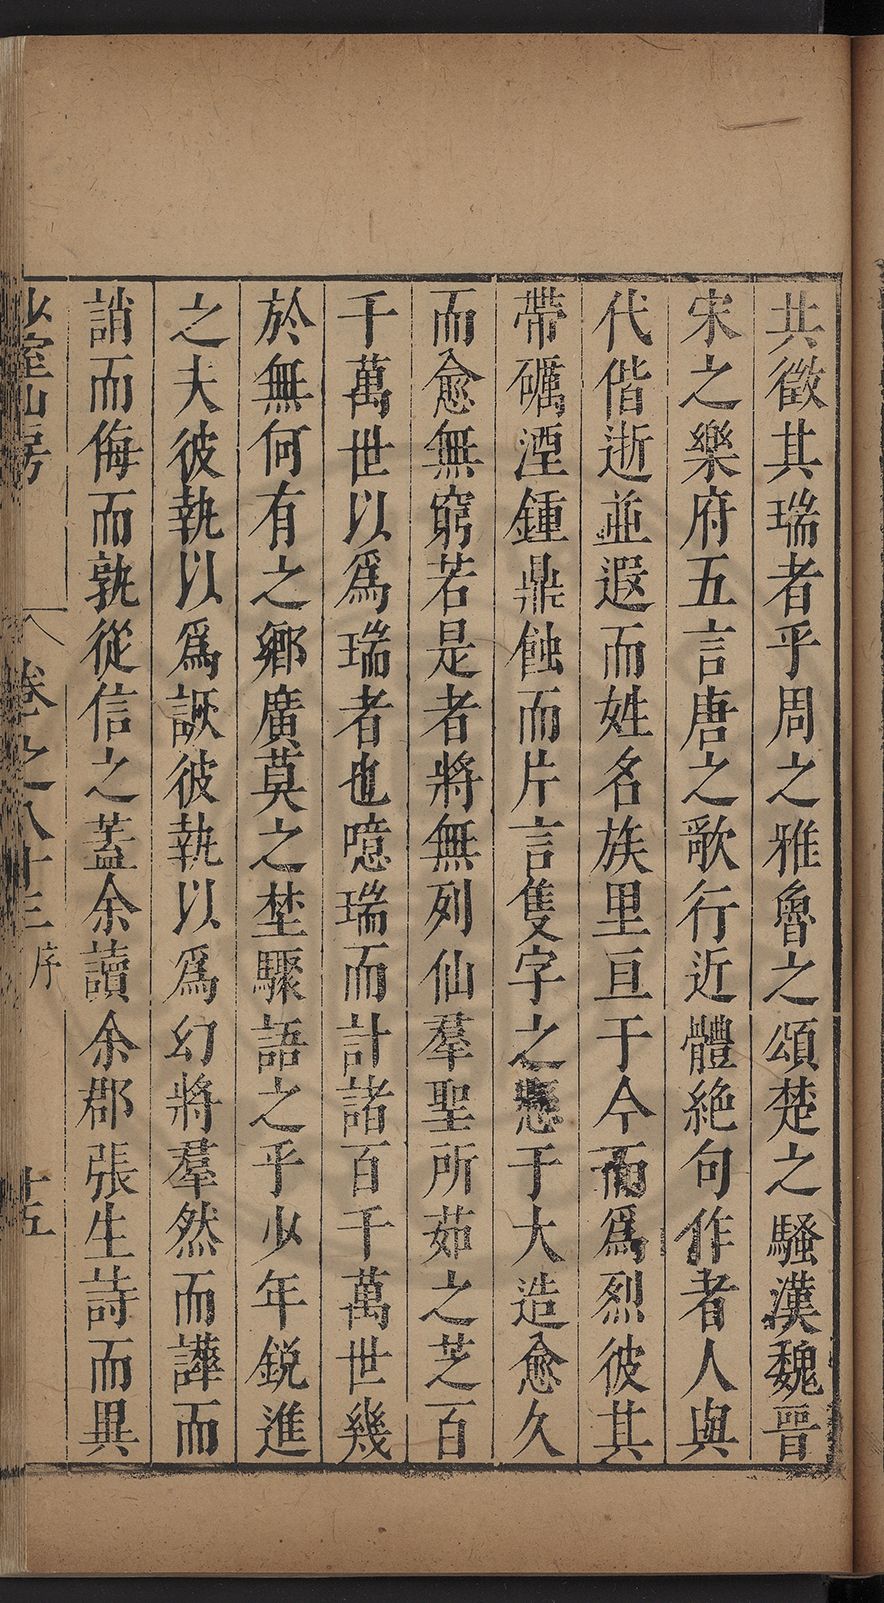 共徵其瑞者乎周之雅魯之頌楚之騷漢魏晉
宋之樂府五言唐之歌行近體絶句作者人與
代偕逝並遐而姓名族里亘于今而爲烈彼其
帶礪湮鍾鼎蝕而片言隻字之懸于大造愈久
而愈無窮若是者將無列仙羣聖所茹之芝百
千萬世以爲瑞者也噫瑞而計諸百千萬世幾
於無何有之鄉廣莫之埜驟語之乎少年鋭進
之夫彼執以爲誕彼執以爲幻將羣然而譁而
誚而侮而孰從信之蓋余讀余郡張生詩而異
少室山房 卷之八十三 序 十五